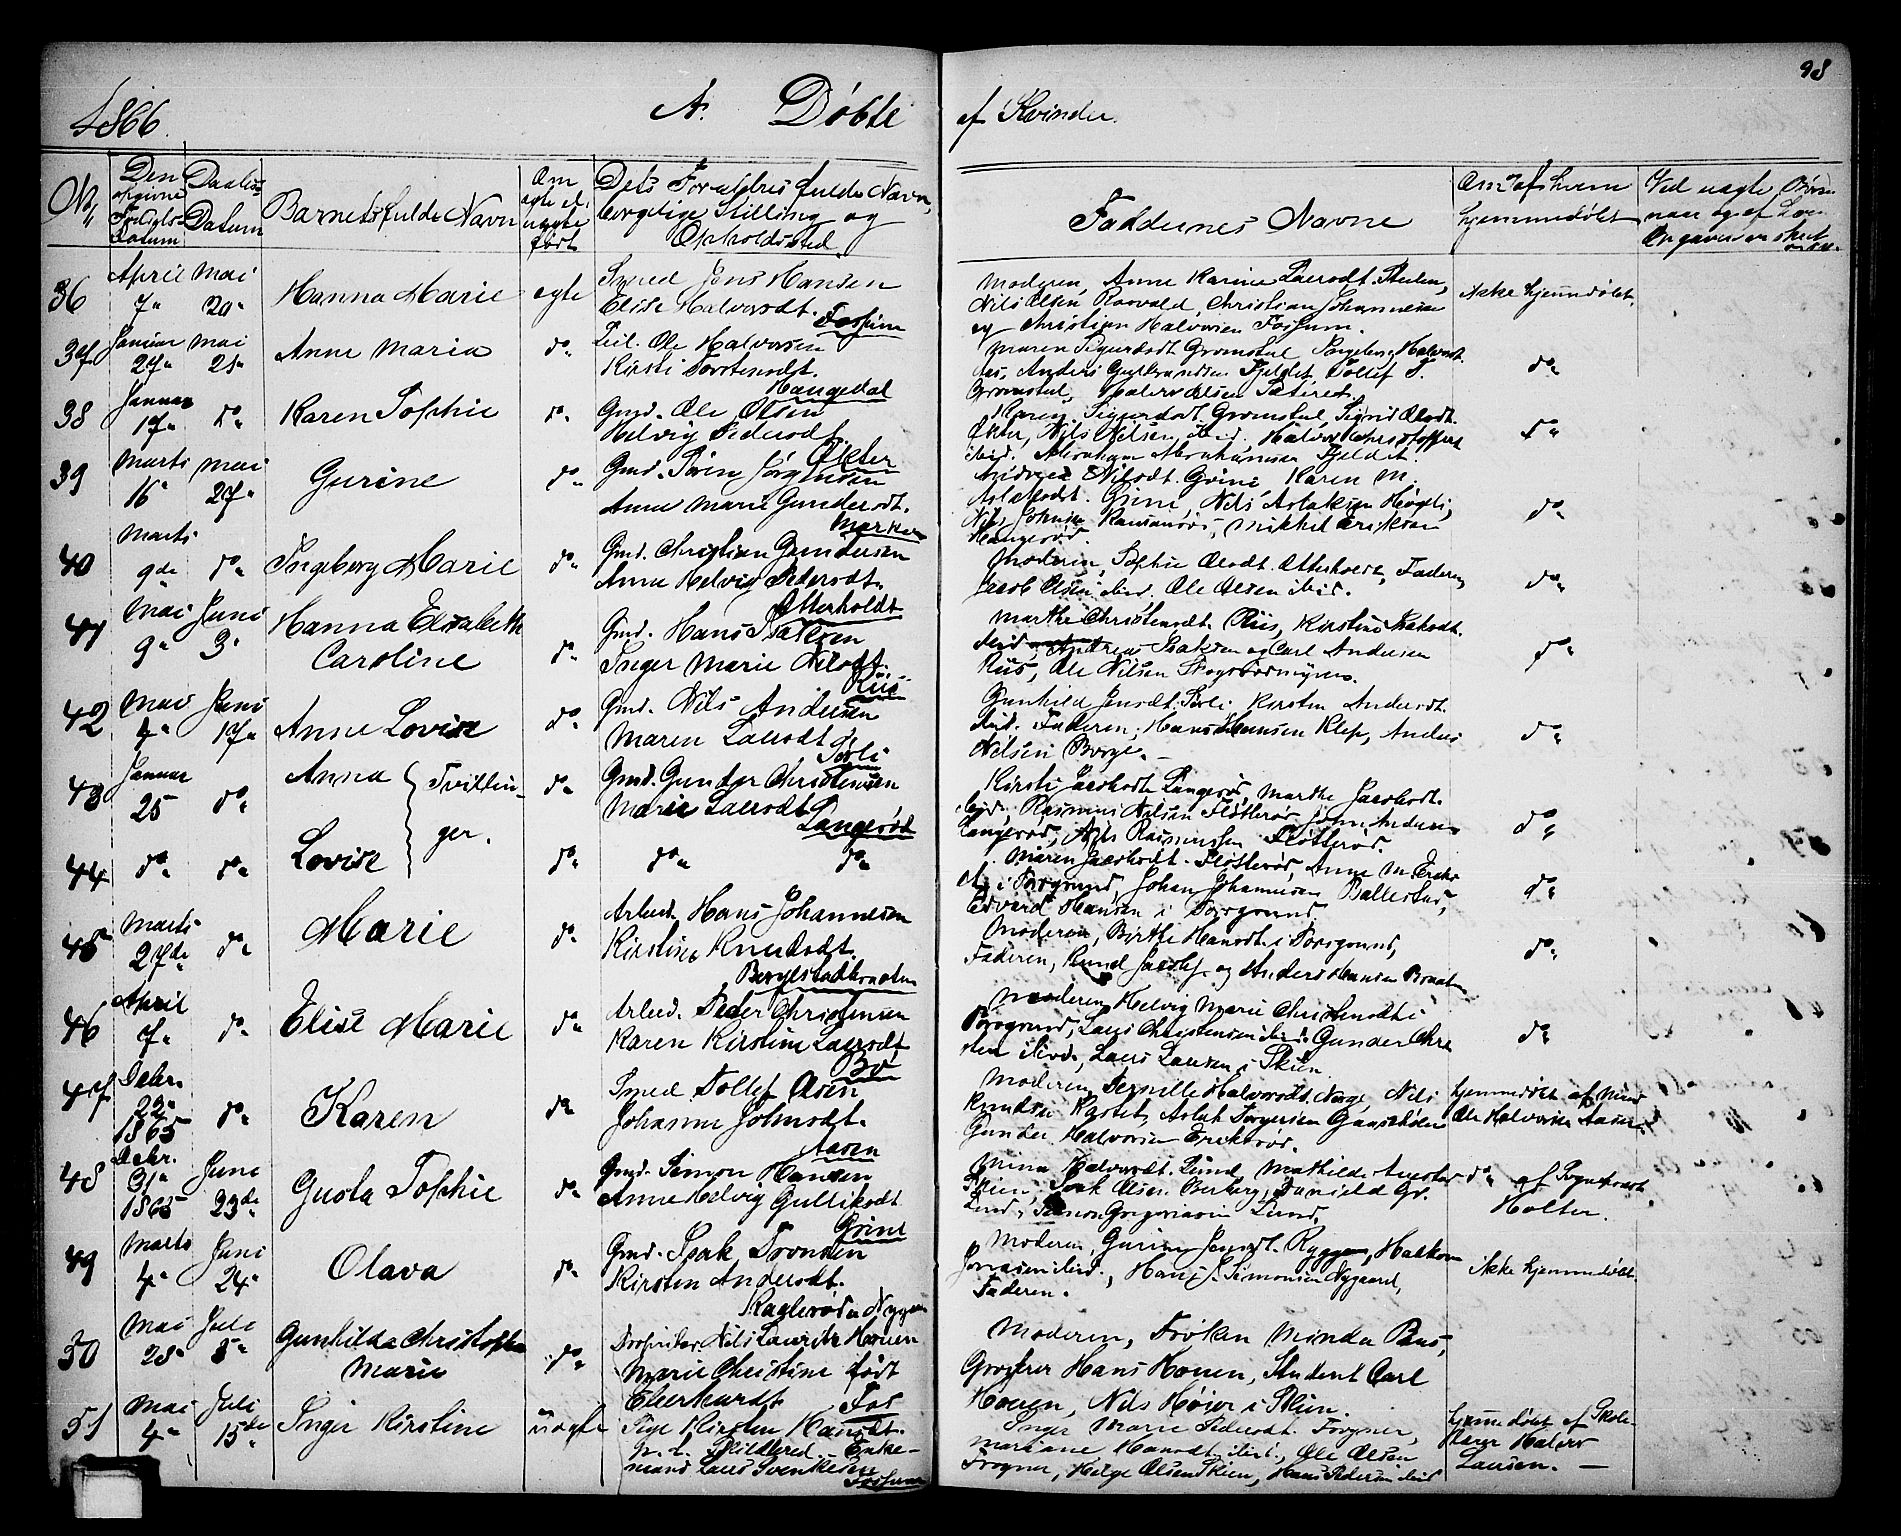 98
1866.
A. Døbte af Kvinder.
No
Den opgivne Fødsels Datum
Daabs Datum
Barnets fulde Navn
Om ægte el. uægte født
Dets Forældres fulde Navn, borgelige Stilling og Opholdssted
Faddernes Navne
Om & af hvem hjemmedøbt
36
April 7
Mai 20
Hanna Marie
egte
Smed Jens Hansen
Elise Halvorsdt. Fossum
Moderen, Anne Karine Larsdt. Skien,
Nils Olsen Raavald, Christian Johannesen
og Christian Halvorsen Fossum.
Ikke hjemmedøbt.
37
Januar 27
Mai 21
Anne Maria
do
Leil. Ole Halvorsen
Kirsti Torstensdt.
Haugedal
Maren Sigurdsdt Gromstul
do
38
Januar 17
do
Karen Sophie
do
Gmd. Ole Olsen
Helvig Pedersdt.
Økter
Karen Sigurdsdt. Gromstul, Sigrid Olsdt.
Økter, Nils Nilsen ibid. Halvor Christoffers
ibid. Abraham Abrahamsen Fjeldet.
do
39
Marts 16
Mai 27
Gurine
do
Gmd. Søren Jørgensen
Anne Marie Gundersdt.
Andrea Nilsdt. Grini Karen M.
Aslaksdt. Grini, Nils Aslaksen
do
40
Marts 9de
do
Ingeborg Marie
do
Gmd. Christian Gundersen
Anne Helvig Pedersdt.
Otterholdt
Moderen, Sophie Olsdt. Otterholdt, Faderen,
Jacob Olsen ibid. Ole Olsen ibid.
do
41
Mai 9
Juni 3
Hanna Elisabeth
Caroline
do
Gmd. Hans Isaksen
Inger Marie Nilsdt.
Riis
Marthe Christensdt. Riis, Kirstine Isaksdt.
ibid. Andreas Isaksen og Carl Andersen
Riis, Ole Nilsen
do
42
Mai 4
Juni 17
Anne Lovise
do
Gmd. Nils Andersen
Maren Larsdt.
Sørli
Gunhild Jensdt. Sørli Kirsten Andersdt.
ibid. Faderen, Hans Hansen Klep, Anders
Nilsen Borge.
do
43
Januar 25
do
Anna
Tvillin-
ger.
do
Gmd. Gunder Christensen
Maren Larsdt.
Langerød
Kirsti Jacobsdt Langerød, Marthe Jacobsdt.
ibid, Rasmus Nilsen Fløtterød, John Anders
Langerød, Nils Rasmussen Fløtterød.
do
44
do
do
Lovise
do
do
do
Maren Jacobsdt. Fløtterød, Anne M. Eriks
dt. i Porsgrund, Johan Johannesen Ballestad,
Edvard Hansen i Porsgrund.
do
45
Marts 27de
do
Marie
do
Arbeid. Hans Johannesen
Kirstine Knudsdt.
Moderen, Birthe Hansdt. i Porsgrund,
Faderen, Knud Jacobs. og Anders Hansen
do
46
April 7
do
Elise Marie
do
Arbeid. Peder Christensen
Karen Kirstine Larsdt
Bø
Moderen, Helvig Marie Christensdt i
Porsgrund, Lars Christensen ibid. Gunder Chri
sten ibid., Lars Larsen i Skien
do
47
Decbr. 22
1865
do
Karen
do
Smed Tollef Olsen
Johanne Johnsdt.
Aasen
Moderen, Pernille Halvorsdt. Norge, Nils
Knudsen
Gunder Halvorsen Eriksrød.
Hjemmedøbt af
Ole Halvorsen Aasen
48
Decbr. 31
1865
Juni 23de
Gusta Sophie
do
Gmd. Simon Hansen
Anne Helvig Gulliksdt
Grini
Mina Halvorsdt. Lund, Mathilde
Skien, Isak Olsen Berberg, Danield Gr.
Lund, Simon Gregoriusen Lund.
do af
Holter.
49
Marts 4
Juni 24
Olava
do
Gmd. Isak Tronsen
Kirsten Andersdt.
Moderen, Gurine Jensdt. Ryggen, Halkon
Jonasen ibid., Hans J. Simonsen Nygaard,
Faderen.
Ikke hjemmedøbt
50
Mai 28
Juli 8
Gunhilda Christophia
Marie
do
Proprietær Nils Lauritz Houen
Marie Christine født
Ekerhardt Fos
Moderen, Frøken Minda Paus,
Grosserer Hans Houen, Student Carl
Houen, Nils Høier i Skien.
51
Mai 4
Juli 15de
Inger Kirstine
uægte
Pige Kirsten Hansdt.
Enke-
mand Lars Svenkesen
Fossum
Inger Marie Pedersdt. Frogner,
Mariane Hansdt. ibid., Ole Olsen
Frogner, Helge Olsen Skien, Hans Pedersen ibid
Hjemmedøbt af Skole
lærer Halvor
Larsen.